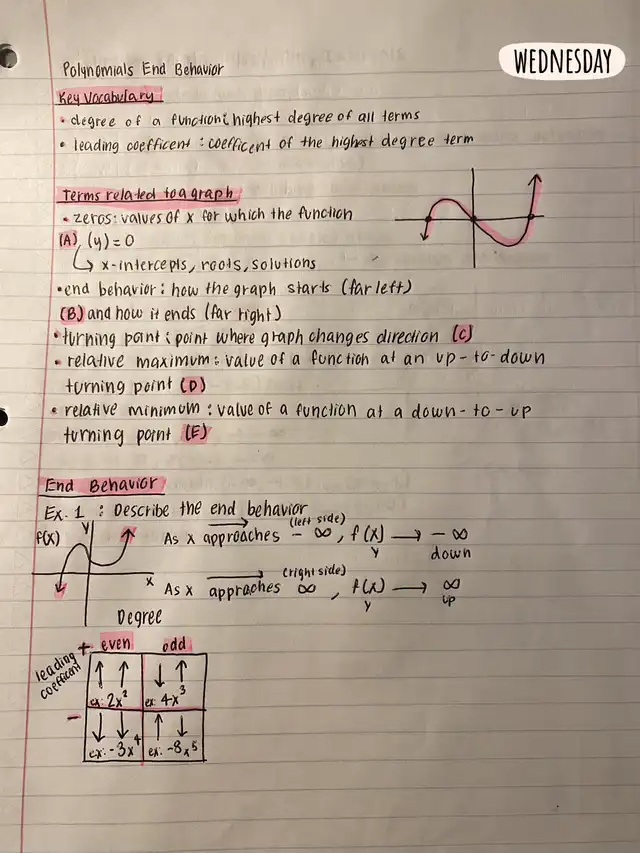 WEDNESDAY
Polynomials End Behavior
Key Vocabulary
• degree of a function: highest degree of all terms
• leading coefficent : coefficent of the highest degree term
Terms related to a graph
• zeros: values of x for which the function
(A) (y) = 0
↳ x-intercepts, roots, solutions
• end behavior: how the graph starts (far left)
(B) and how it ends (far right)
• turning point: point where graph changes direction (C)
• relative maximum: value of a function at an up-to-down
turning point (D)
• relative minimum: value of a function at a down-to-up
turning point (E)
End Behavior
Ex. 1 : Describe the end behavior
(left side)
f(x) y As x approaches -∞, f(x) → -∞
y down
(right side)
x As x approaches ∞, f(x) → ∞
y up
Degree
+ even odd
leading coefficent
↑ ↑ ↓ ↑
ex: 2x² ex: 4x³
-
↓ ↓ ↑ ↓
ex: -3x⁴ ex: -8x⁵